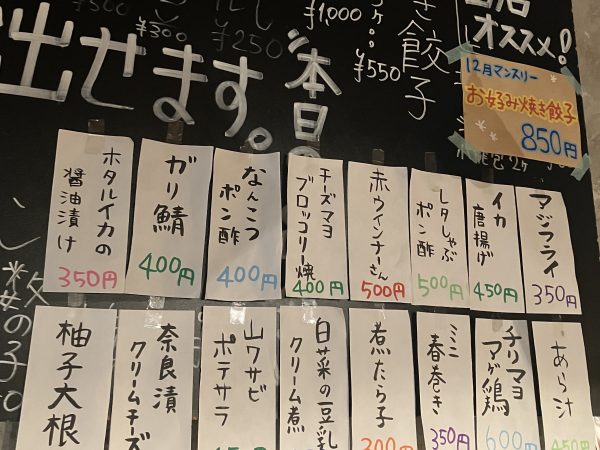 当店
オススメ！
12月マンスリー
お好み焼き餃子
850円
き餃子
¥550
¥1,000
本日の
¥250
¥300
出せます。
マジフライ
350円
イカ
唐揚げ
450円
レタしゃぶ
ポン酢
500円
赤ウインナーさん
500円
チーズマヨ
ブロッコリー焼
400円
なんこつ
ポン酢
400円
ガリ鯖
400円
ホタルイカの
醤油漬け
350円
あら汁
450円
チリマヨ
アゲ鶏
600円
ミニ
春巻き
350円
煮たら子
300円
白菜の豆乳
クリーム煮
山ワサビ
ポテサラ
奈良漬
クリームチーズ
柚子大根
数の子